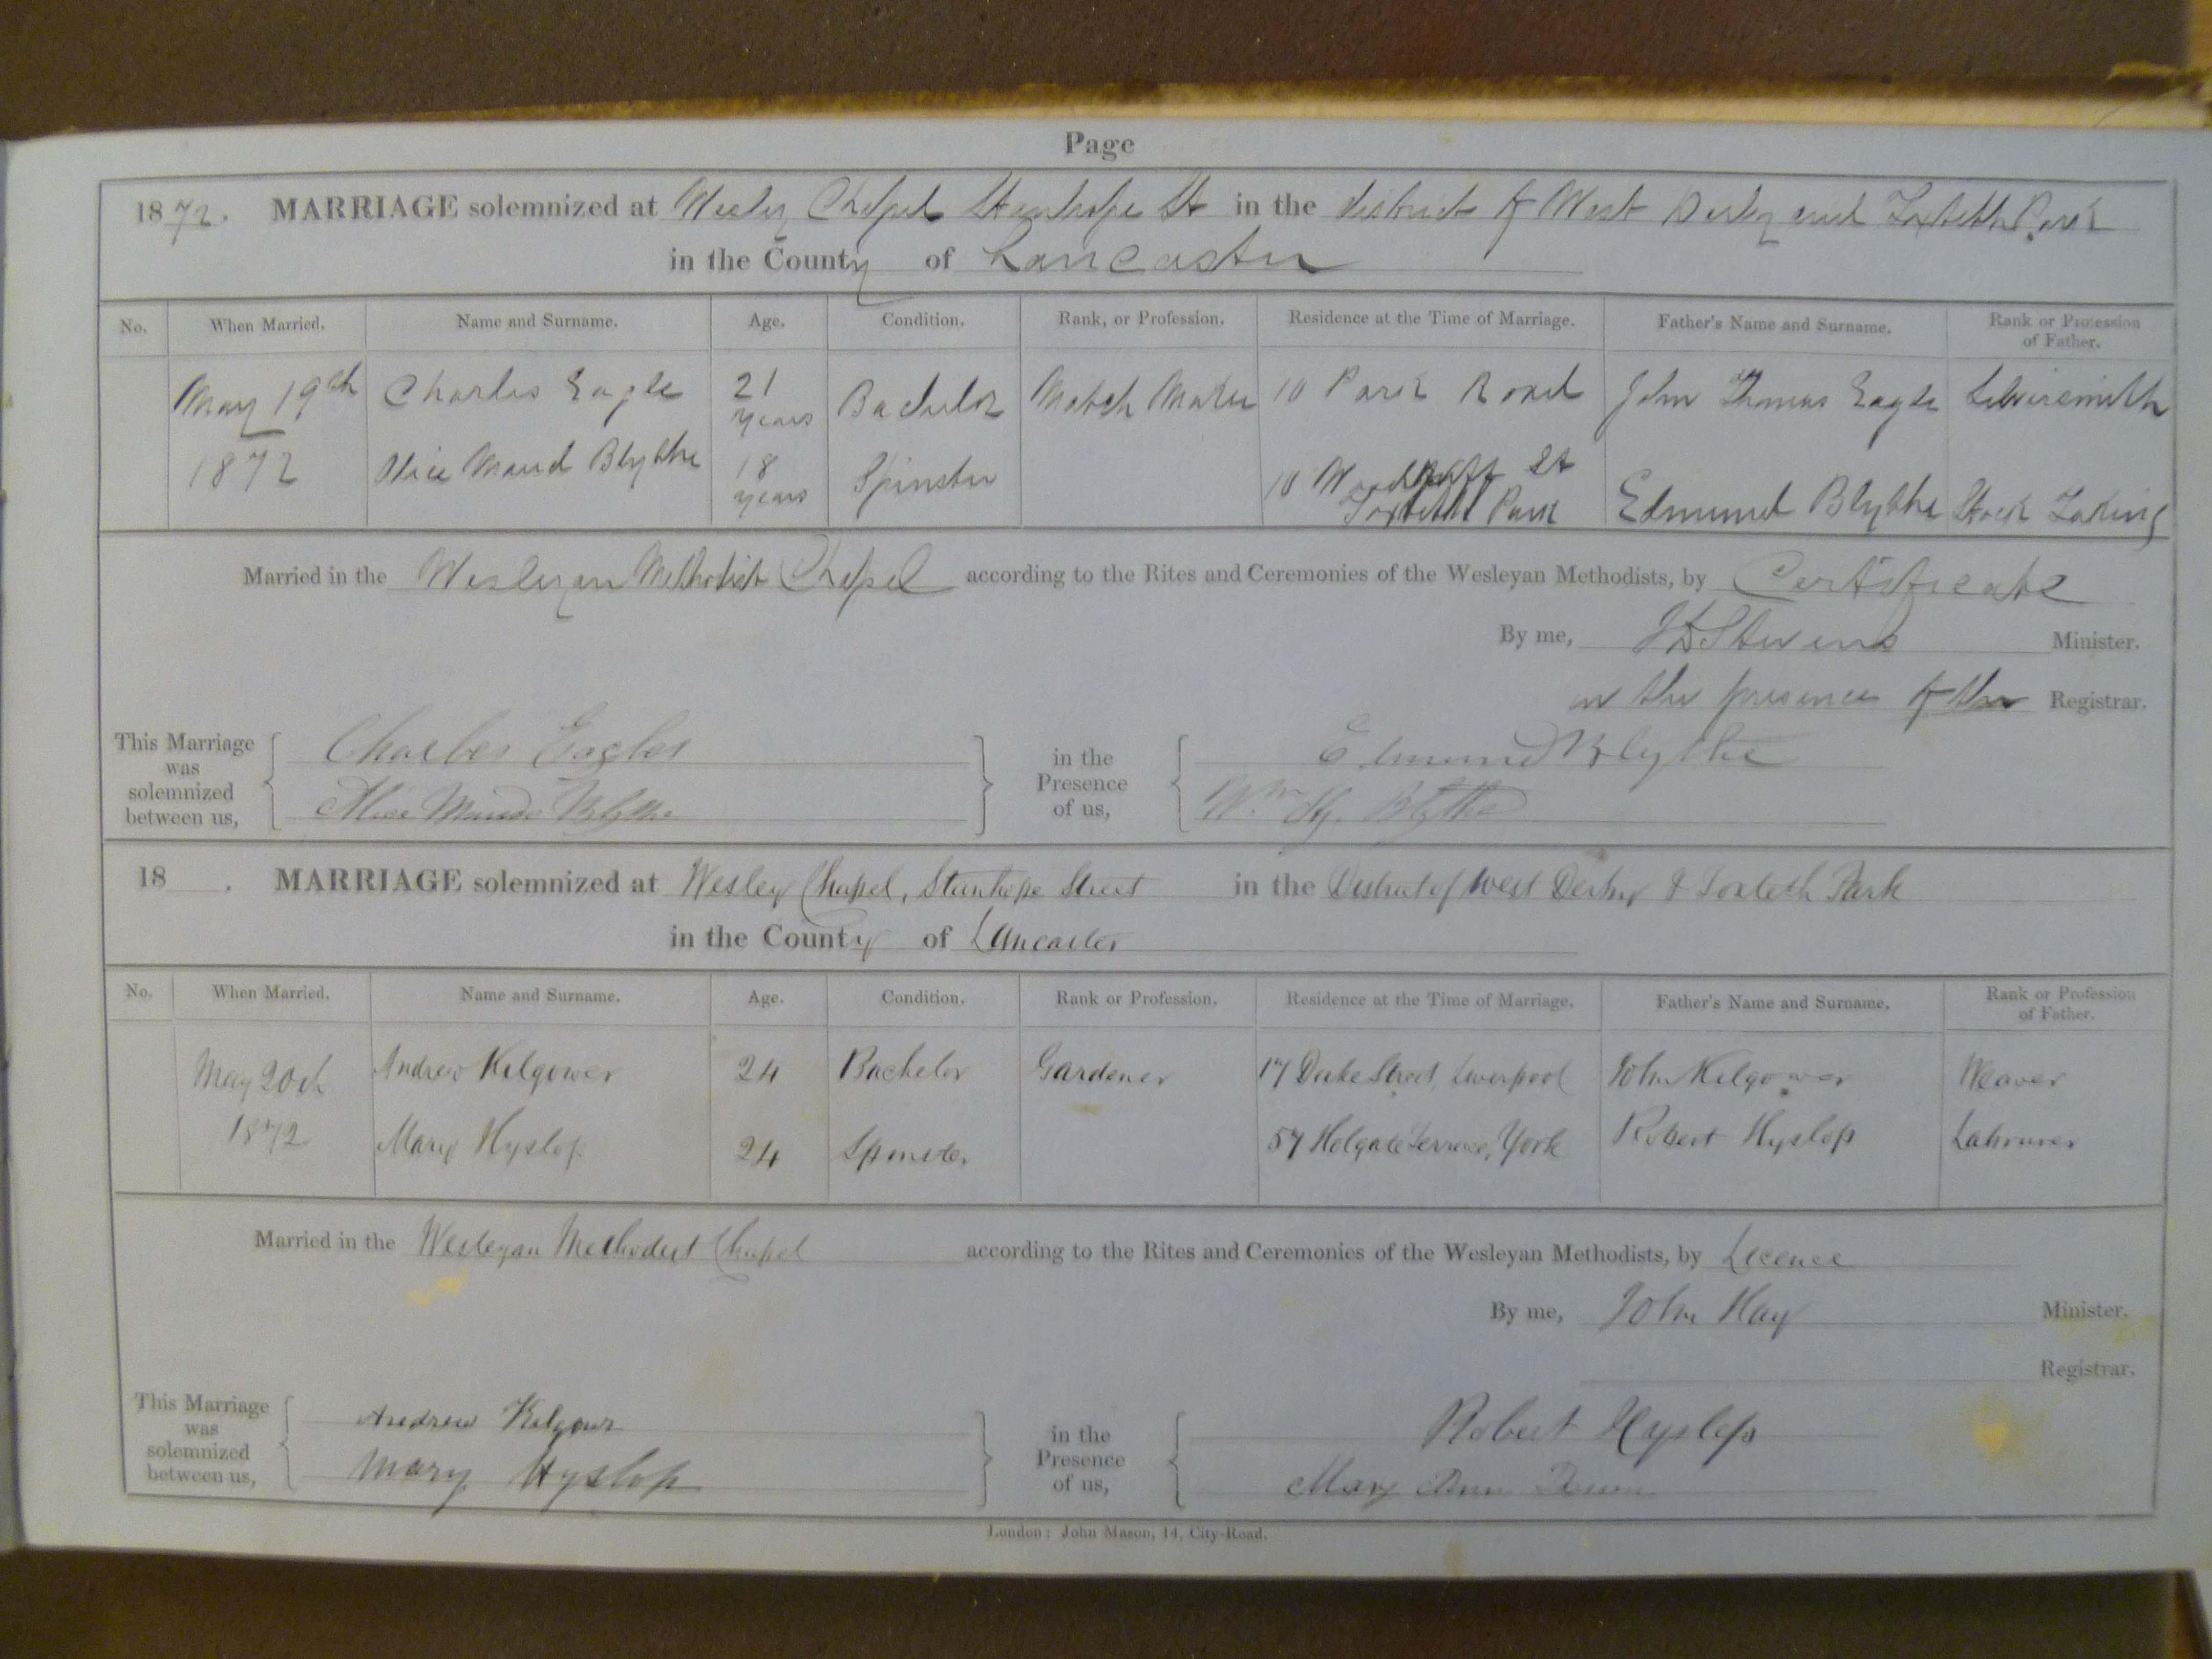 Page
1872. MARRIAGE solemnized at Wesley Chapel Stanhope St in the district of West Derby and Toxteth Park
in the County of Lancaster
No. When Married. Name and Surname. Age. Condition. Rank, or Profession. Residence at the Time of Marriage. Father's Name and Surname. Rank or Profession of Father.
May 19th Charles Eagle 21 years Bachelor Match Maker 10 Park Road John Thomas Eagle Silversmith
1872 Alice Maud Blythe 18 years Spinster 10 St Toxteth Park Edmund Blythe Stock Taking
Married in the Wesleyan Methodist Chapel according to the Rites and Ceremonies of the Wesleyan Methodists, by Certificate
By me, Stevens Minister.
in the presence of the Registrar.
This Marriage was solemnized between us, Charles Eagles in the Presence of us, Edmund Blythe
Alice Maude Blythe Wm Hy. Blythe
18 . MARRIAGE solemnized at Wesley Chapel, Stanhope Street in the District of West Derby & Toxteth Park
in the County of Lancaster
No. When Married. Name and Surname. Age. Condition. Rank or Profession. Residence at the Time of Marriage. Father's Name and Surname. Rank or Profession of Father.
May 20th Andrew Kilgower 24 Bachelor Gardener 17 Duke Street, Liverpool John Kilgower Weaver
1872 Mary Hyslop 24 Spinster 57 Holgate Terrace, York Robert Hyslop Labourer
Married in the Wesleyan Methodist Chapel according to the Rites and Ceremonies of the Wesleyan Methodists, by Licence
By me, John Hay Minister.
Registrar.
This Marriage was solemnized between us, Andrew Kilgour in the Presence of us, Robert Hyslop
Mary Hyslop Mary Ann
London: John Mason, 14, City-Road.